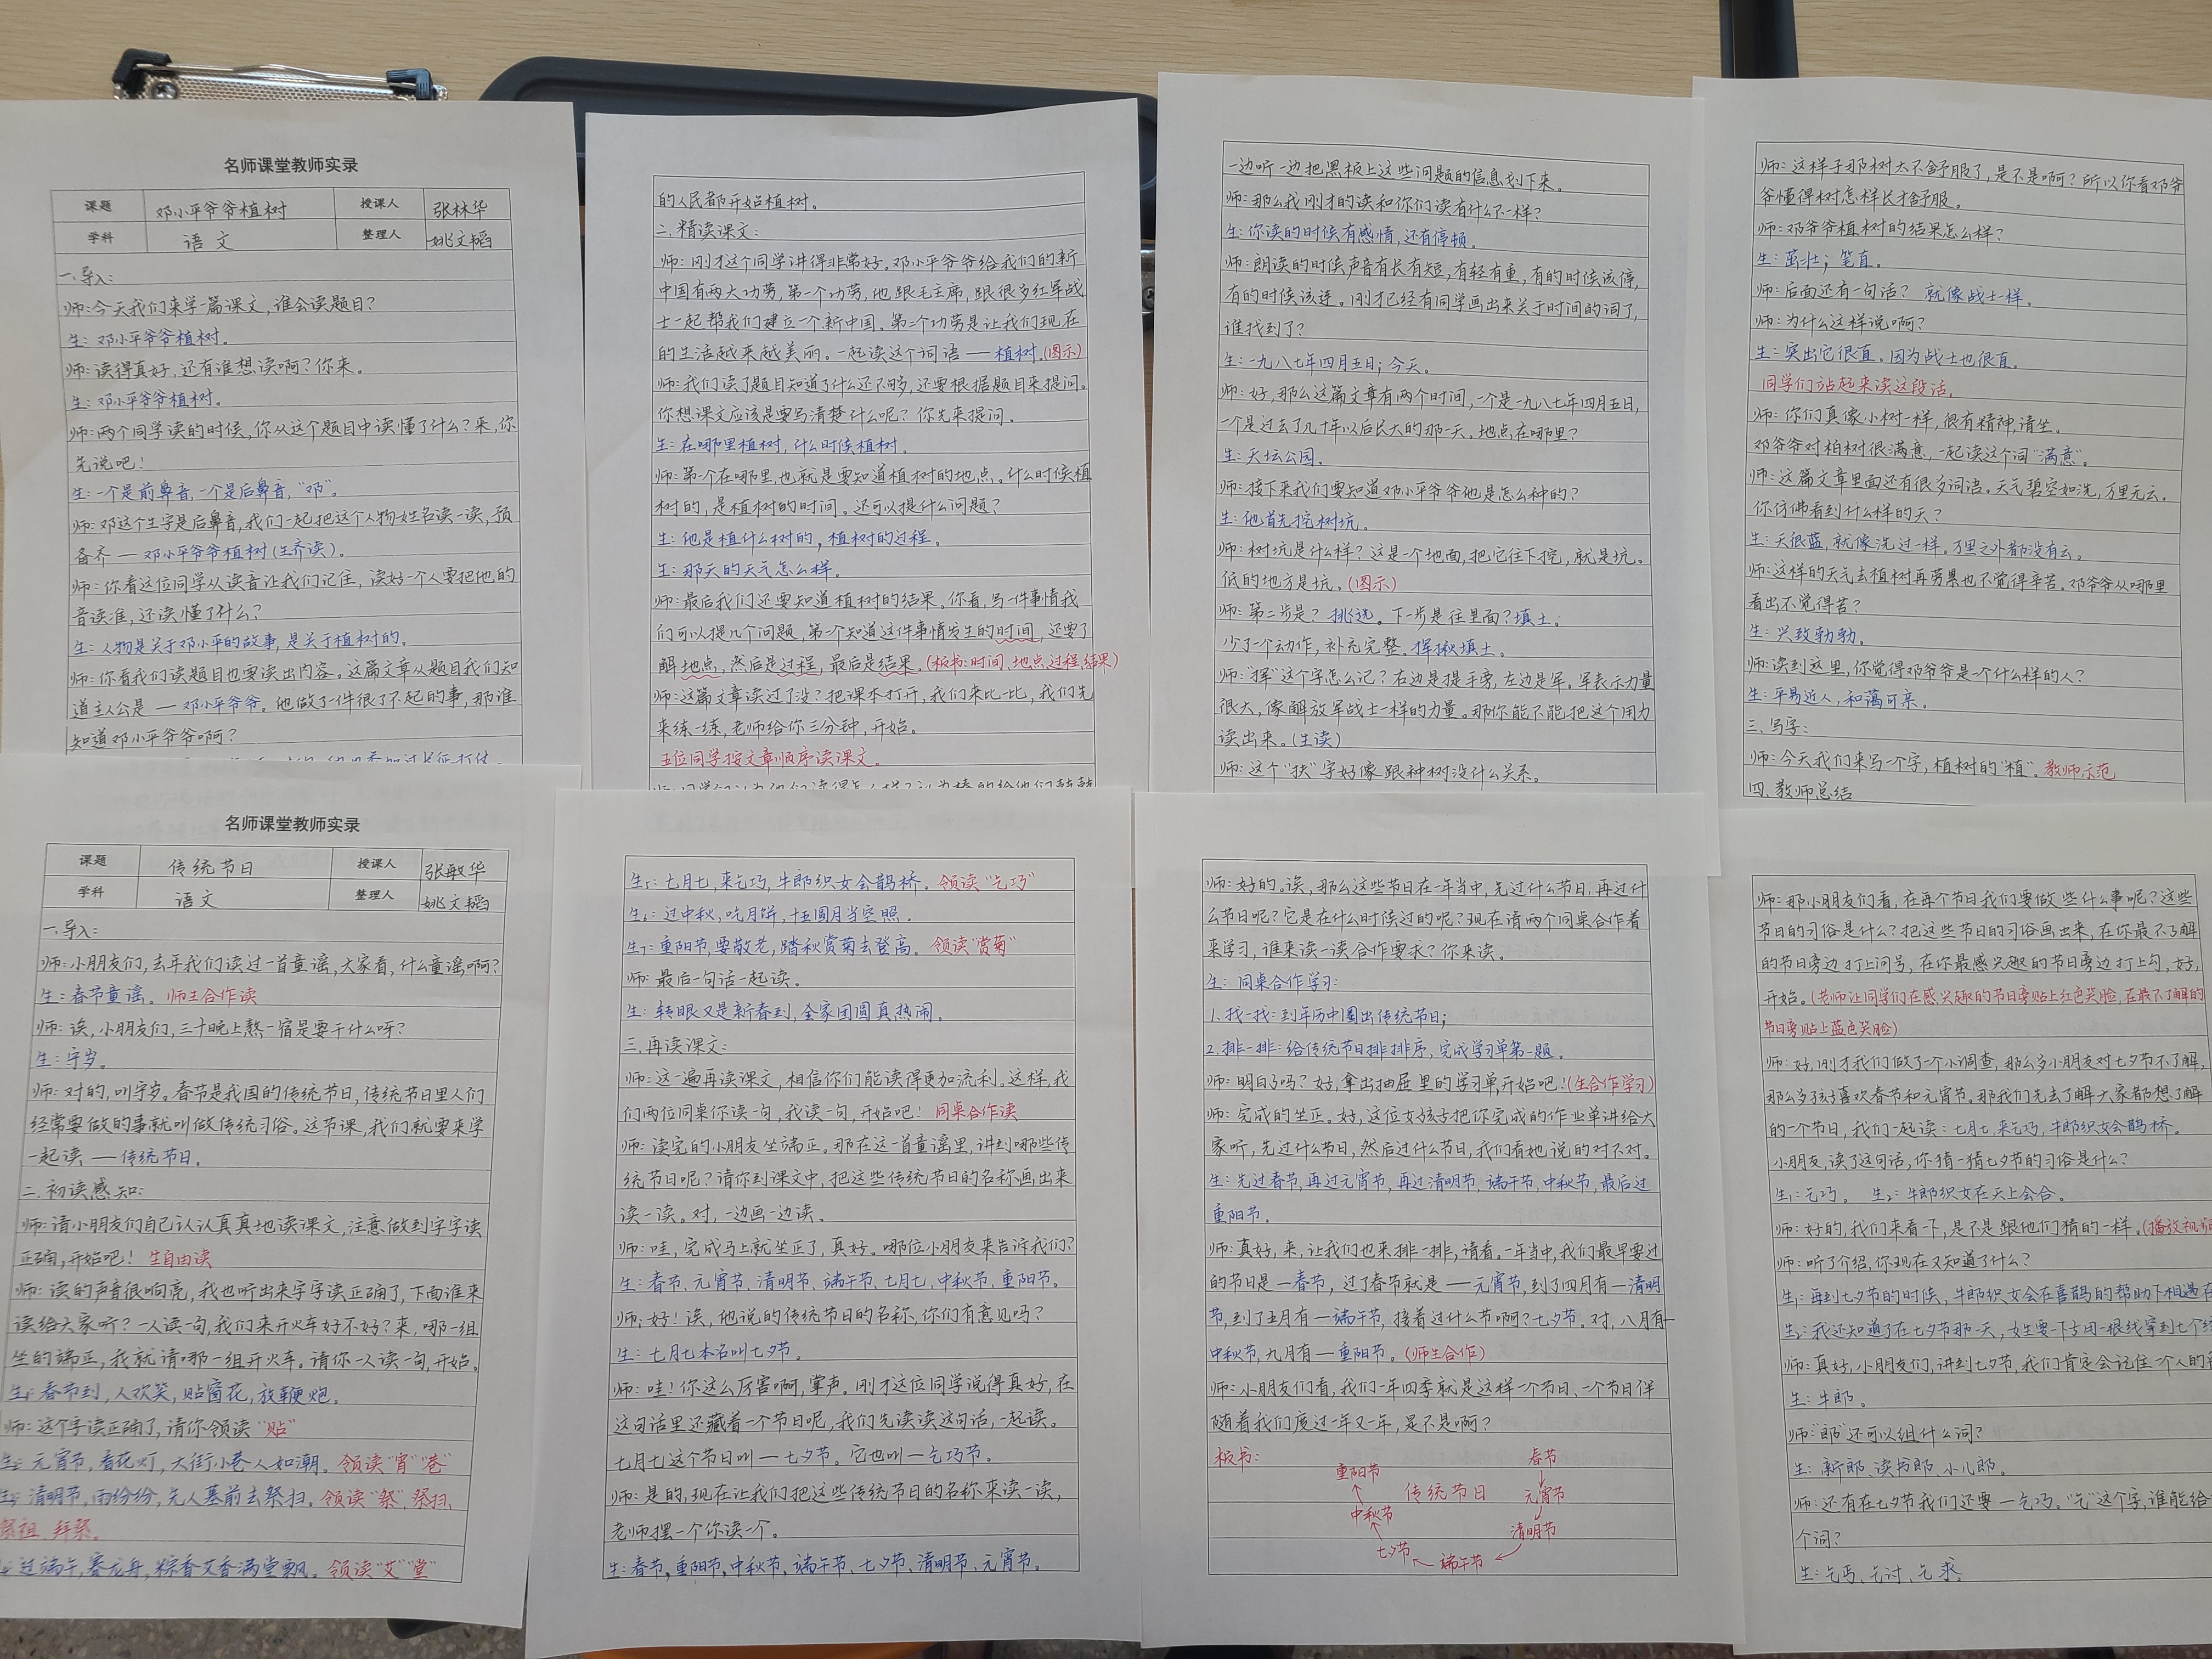 名师课堂教师实录
课题 邓小平爷爷植树 授课人 张林华
学科 语文 整理人 姚文韬
一.导入:
师:今天我们来学一篇课文,谁会读题目?
生:邓小平爷爷植树。
师:读得真好,还有谁想读啊?你来。
生:邓小平爷爷植树。
师:两个同学读的时候,你从这个题目中读懂了什么?来,你
先说吧!
生:一个是前鼻音,一个是后鼻音,“邓”。
师:邓这个生字是后鼻音,我们一起把这个人物姓名读一读,预
备齐—邓小平爷爷植树(生齐读)。
师:你看这位同学从读音让我们记住,读好一个人要把他的
音读准,还读懂了什么?
生:人物是关于邓小平的故事,是关于植树的。
师:你看我们读题目也要读出内容。这篇文章从题目我们知
道主人公是—邓小平爷爷。他做了一件很了不起的事,那谁
知道邓小平爷爷啊?
的人民都开始植树。
二.精读课文:
师:刚才这个同学讲得非常好。邓小平爷爷给我们的新
中国有两大功劳,第一个功劳,他跟毛主席,跟很多红军战
士一起帮我们建立一个新中国。第二个功劳是让我们现在
的生活越来越美丽。一起读这个词语—植树.(图示)
师:我们读了题目知道了什么还不够,还要根据题目来提问。
你想课文应该是要写清楚什么呢?你先来提问.
生:在哪里植树,什么时候植树.
师:第一个在哪里,也就是要知道植树的地点。什么时候植
树的,是植树的时间。还可以提什么问题?
生:他是植什么树的,植树的过程。
生:那天的天气怎么样。
师:最后我们还要知道植树的结果。你看,写一件事情我
们可以提几个问题,第一个知道这件事情发生的时间,还要了
解地点,然后是过程,最后是结果。(板书:时间、地点、过程、结果)
师:这篇文章读过了没?把课本打开,我们来比一比,我们先
来练一练,老师给你三分钟,开始。
五位同学按文章顺序读课文。
一边听一边把黑板上这些问题的信息划下来。
师:那么我刚才的读和你们读有什么不一样?
生:你读的时候有感情,还有停顿。
师:朗读的时候声音有长有短,有轻有重,有的时候该停,
有的时候该连。刚才已经有同学画出来关于时间的词了,
谁找到了?
生:一九八七年四月五日;今天。
师:好,那么这篇文章有两个时间,一个是一九八七年四月五日,
一个是过去了几十年以后长大的那一天。地点在哪里?
生:天坛公园.
师:接下来我们要知道邓小平爷爷他是怎么种的?
生:他首先挖树坑。
师:树坑是什么样?这是一个地面,把它往下挖,就是坑。
低的地方是坑。(图示)
师:第二步是?挑选。下一步是往里面?填土;
少了一个动作,补充完整。挥锹填土。
师:“挥”这个字怎么记?右边是提手旁,左边是军。军表示力量
很大,像解放军战士一样的力量。那你能不能把这个用力
读出来。(生读)
师:这个“扶”字好像跟种树没什么关系。
师:这样子那树太不舒服了,是不是啊?所以你看邓爷
爷懂得树怎样长才舒服。
师:邓爷爷植树的结果怎么样?
生:茁壮;笔直。
师:后面还有一句话? 就像战士一样。
师:为什么这样说啊?
生:突出它很直.因为战士也很直。
同学们站起来读这段话.
师:你们真像小树一样,很有精神,请坐.
邓爷爷对柏树很满意,一起读这个词“满意”。
师:这篇文章里面还有很多词语。天气碧空如洗,万里无云。
你仿佛看到什么样的天?
生:天很蓝,就像洗过一样。万里之外都没有云。
师:这样的天气去植树再劳累也不觉得辛苦。邓爷爷从哪里
看出不觉得苦?
生:兴致勃勃。
师:读到这里,你觉得邓爷爷是一个什么样的人?
生:平易近人,和蔼可亲.
三.写字:
师:今天我们来写一个字,植树的“植”。教师示范
四.教师总结
名师课堂教师实录
课题 传统节日 授课人 张敏华
学科 语文 整理人 姚文韬
一.导入:
师:小朋友们,去年我们读过一首童谣,大家看,什么童谣啊?
生:春节童谣。师生合作读
师:诶,小朋友们,三十晚上熬一宿是要干什么呀?
生:守岁。
师:对的,叫守岁。春节是我国的传统节日,传统节日里人们
经常要做的事就叫做传统习俗。这节课,我们就要来学
一起读—传统节日。
二.初读感知:
师:请小朋友们自己认认真真地读课文,注意做到字字读
正确,开始吧! 生自由读
师:读的声音很响亮,我也听出来字字读正确了,下面谁来
读给大家听?一人读一句,我们来开火车好不好?来,哪一组
坐的端正,我就请哪一组开火车。请你一人读一句,开始。
生1:春节到,人欢笑,贴窗花,放鞭炮。
师:这个字读正确了,请你领读“贴”
生2:元宵节,看花灯,大街小巷人如潮。领读“宵”“巷”
生3:清明节,雨纷纷,先人墓前去祭扫。领读“祭”,祭扫、
祭祖、拜祭。
过端午,赛龙舟,粽香艾香满堂飘。领读“艾”“堂”
生5:七月七,来乞巧,牛郎织女会鹊桥。领读“乞巧”
生6:过中秋,吃月饼,十五圆月当空照.
生7:重阳节,要敬老,踏秋赏菊去登高。领读“赏菊”
师:最后一句话一起读.
生:转眼又是新春到,全家团圆真热闹.
三.再读课文:
师:这一遍再读课文,相信你们能读得更加流利。这样,我
们两位同桌你读一句,我读一句,开始吧! 同桌合作读
师:读完的小朋友坐端正。那在这一首童谣里,讲到哪些传
统节日呢?请你到课文中,把这些传统节日的名称画出来
读一读。对,一边画一边读.
师:哇,完成马上就坐正了,真好。哪位小朋友来告诉我们?
生:春节、元宵节、清明节、端午节、七月七、中秋节、重阳节。
师:好!诶,他说的传统节日的名称,你们有意见吗?
生:七月七本名叫七夕节。
师:哇!你这么厉害啊,掌声。刚才这位同学说得真好,在
这句话里还藏着一个节日呢,我们先读读这句话,一起读。
七月七这个节日叫—七夕节。它也叫—乞巧节。
师:是的,现在让我们把这些传统节日的名称来读一读,
老师摆一个你读一个。
生:春节,重阳节,中秋节,端午节、七夕节、清明节、元宵节。
师:好的。诶,那么这些节日在一年当中,先过什么节日,再过什
么节日呢?它是在什么时候过的呢?现在请两个同桌合作着
来学习,谁来读一读合作要求?你来读。
生:同桌合作学习:
1.找一找:到年历中圈出传统节日;
2.排一排:给传统节日排排序,完成学习单第一题。
师:明白了吗?好,拿出抽屉里的学习单开始吧!(生合作学习)
师:完成的坐正。好,这位女孩子把你完成的作业单讲给大
家听,先过什么节日,然后过什么节日,我们看她说的对不对。
生:先过春节,再过元宵节,再过清明节,端午节,中秋节,最后过
重阳节。
师:真好,来,让我们也来排一排,请看。一年当中,我们最早要过
的节日是—春节,过了春节就是—元宵节,到了四月有—清明
节,到了五月有—端午节,接着过什么节啊?七夕节。对,八月有—
中秋节,九月有—重阳节。(师生合作)
师:小朋友们看,我们一年四季就是这样一个节日、一个节日伴
随着我们度过一年又一年,是不是啊?
板书: 春节
重阳节
传统节日 元宵节
中秋节
清明节
七夕节
端午节
师:那小朋友们看,在每个节日我们要做些什么事呢?这些
节日的习俗是什么?把这些节日的习俗画出来,在你最不了解
的节日旁边打上问号,在你最感兴趣的节日旁边打上勾,好,
开始。(老师让同学们在感兴趣的节日旁贴上红色笑脸,在最不了解的
节日旁贴上蓝色笑脸)
师:好,刚才我们做了一个小调查,那么多小朋友对七夕节不了解,
那么多孩子喜欢春节和元宵节。那我们先去了解大家都想了解
的一个节日,我们一起读:七月七,来乞巧,牛郎织女会鹊桥。
小朋友,读了这句话,你猜一猜七夕节的习俗是什么?
生1:乞巧。 生2:牛郎织女在天上会合。
师:好的,我们来看一下,是不是跟他们猜的一样。(播放视频
师:听了介绍,你现在又知道了什么?
生1:每到七夕节的时候,牛郎织女会在喜鹊的帮助下相遇
生2:我还知道了在七夕节那一天,女生要一下子用一根线穿到七个
师:真好,小朋友们,讲到七夕节,我们肯定会记住一个人的
生:牛郎。
师:“郎”还可以组什么词?
生:新郎、读书郎、小儿郎。
师:还有在七夕节我们还要—乞巧。“乞”这个字,谁能给
个词?
生:乞丐、乞讨、乞求.